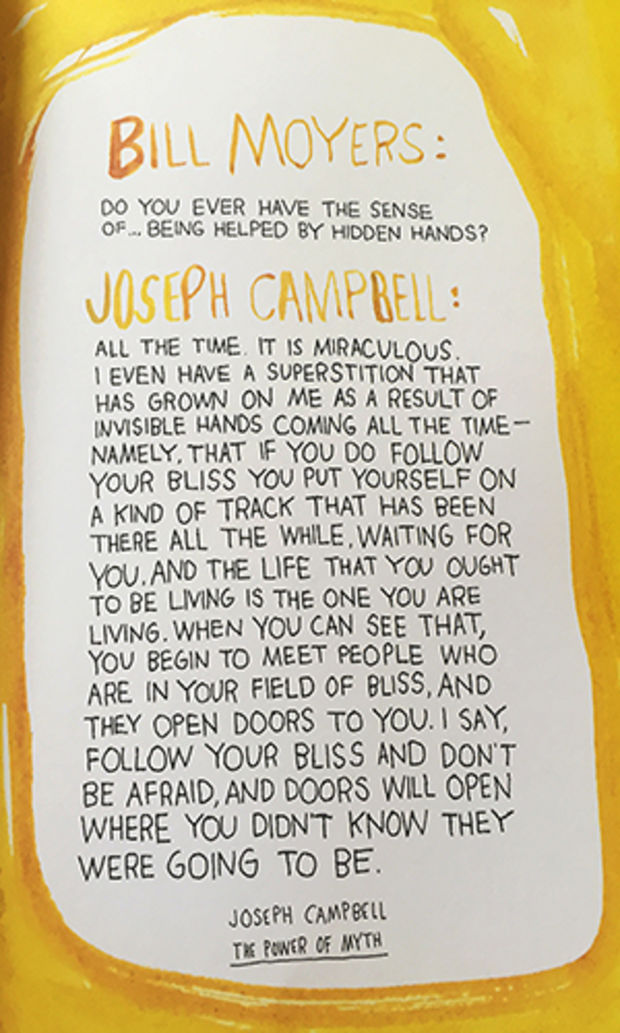 BILL MOYERS:
DO YOU EVER HAVE THE SENSE
OF... BEING HELPED BY HIDDEN HANDS?
JOSEPH CAMPBELL:
ALL THE TIME. IT IS MIRACULOUS.
I EVEN HAVE A SUPERSTITION THAT
HAS GROWN ON ME AS A RESULT OF
INVISIBLE HANDS COMING ALL THE TIME—
NAMELY, THAT IF YOU DO FOLLOW
YOUR BLISS YOU PUT YOURSELF ON
A KIND OF TRACK THAT HAS BEEN
THERE ALL THE WHILE, WAITING FOR
YOU, AND THE LIFE THAT YOU OUGHT
TO BE LIVING IS THE ONE YOU ARE
LIVING. WHEN YOU CAN SEE THAT,
YOU BEGIN TO MEET PEOPLE WHO
ARE IN YOUR FIELD OF BLISS, AND
THEY OPEN DOORS TO YOU. I SAY,
FOLLOW YOUR BLISS AND DON'T
BE AFRAID, AND DOORS WILL OPEN
WHERE YOU DIDN'T KNOW THEY
WERE GOING TO BE.
JOSEPH CAMPBELL
THE POWER OF MYTH